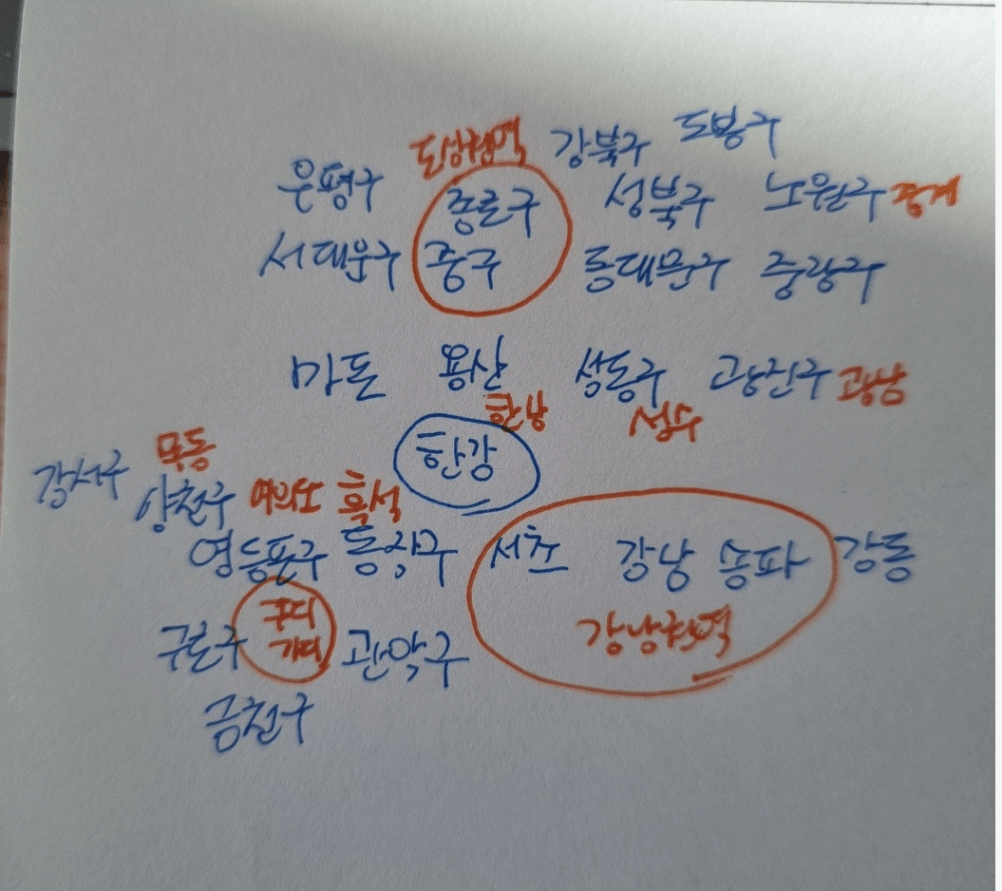 도심권역 강북구 도봉구
은평구 종로구 성북구 노원구 중계
서대문구 중구 동대문구 중랑구
마포 용산 성동구 광진구 광남
한남 성수
한강
강서구 목동
양천구 여의도 흑석
영등포구 동작구 서초 강남 송파 강동
구로구 구디 관악구 강남권역
가디
금천구